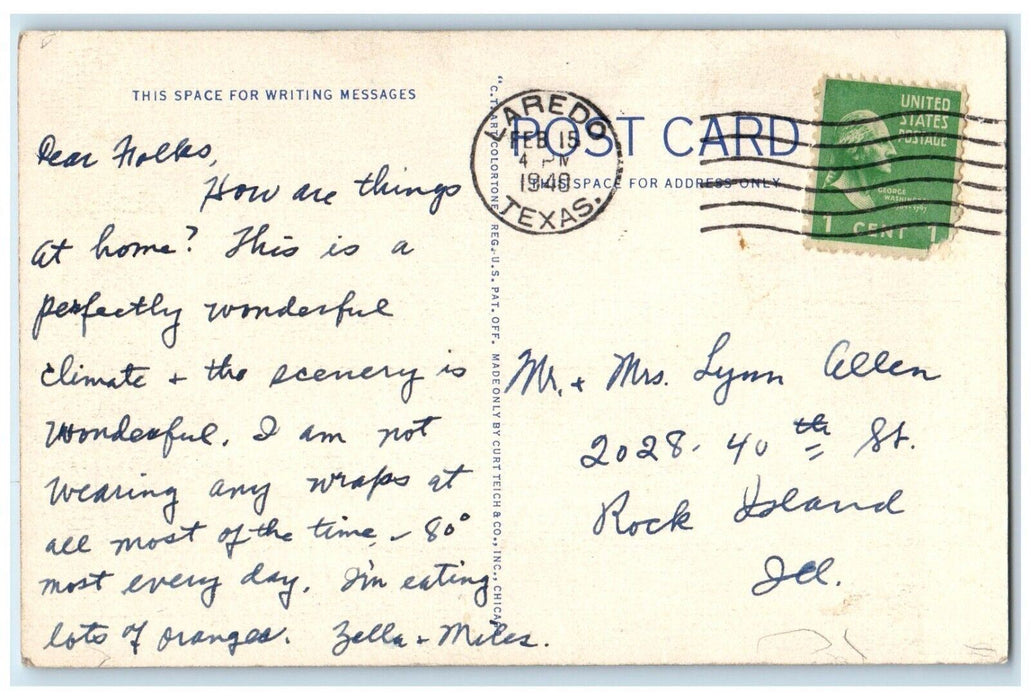 THIS SPACE FOR WRITING MESSAGES
Dear Folks,
How are things
at home? This is a
perfectly wonderful
climate + the scenery is
wonderful. I am not
wearing any wraps at
all most of the time - 80°
most every day. I'm eating
lots of oranges. Zella + Miles.
"C.T. ART-COLORTONE" REG. U.S. PAT. OFF. MADE ONLY BY CURT TEICH & CO., INC., CHICAGO
LAREDO
FEB 15
4 PM
1940
TEXAS.
POST CARD
THIS SPACE FOR ADDRESS ONLY
UNITED
STATES
POSTAGE
GEORGE
WASHINGTON
1 CENT 1
Mr. + Mrs. Lynn Allen
2028 - 40th St.
Rock Island
Ill.